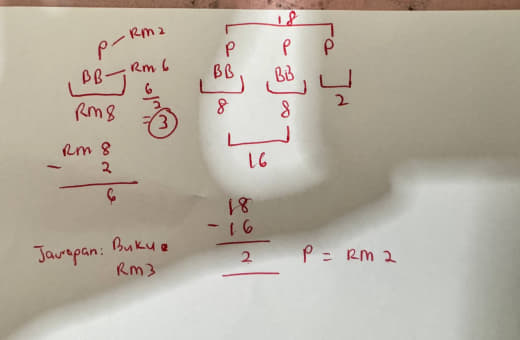 P - RM2
BB - RM6
RM8
6
2
= 3
RM 8
- 2
6
18
P P P
BB BB
8 8 2
16
18
- 16
2
P = RM 2
Jawapan: Buku =
RM3